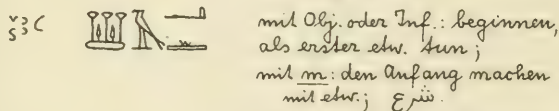 šꜣꜥ mit Obj. oder Inf.: beginnen,
als erster etw. tun;
mit m: den Anfang machen
mit etw.; شرع.